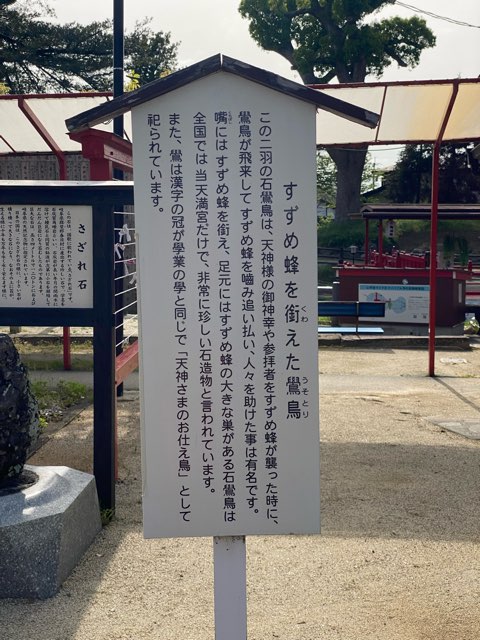 すずめ蜂を銜えた鷽鳥
くわ
うそとり
この二羽の石鷽鳥は、天神様の御神幸や参拝者をすずめ蜂が襲った時に、
鷽鳥が飛来してすずめ蜂を噛み追い払い、人々を助けた事は有名です。
嘴にはすずめ蜂を銜え、足元にはすずめ蜂の大きな巣がある石鷽鳥は
くちばし
全国では当天満宮だけで、非常に珍しい石造物と言われています。
また、鷽は漢字の冠が學業の學と同じで「天神さまのお仕え鳥」として
祀られています。
さざれ石